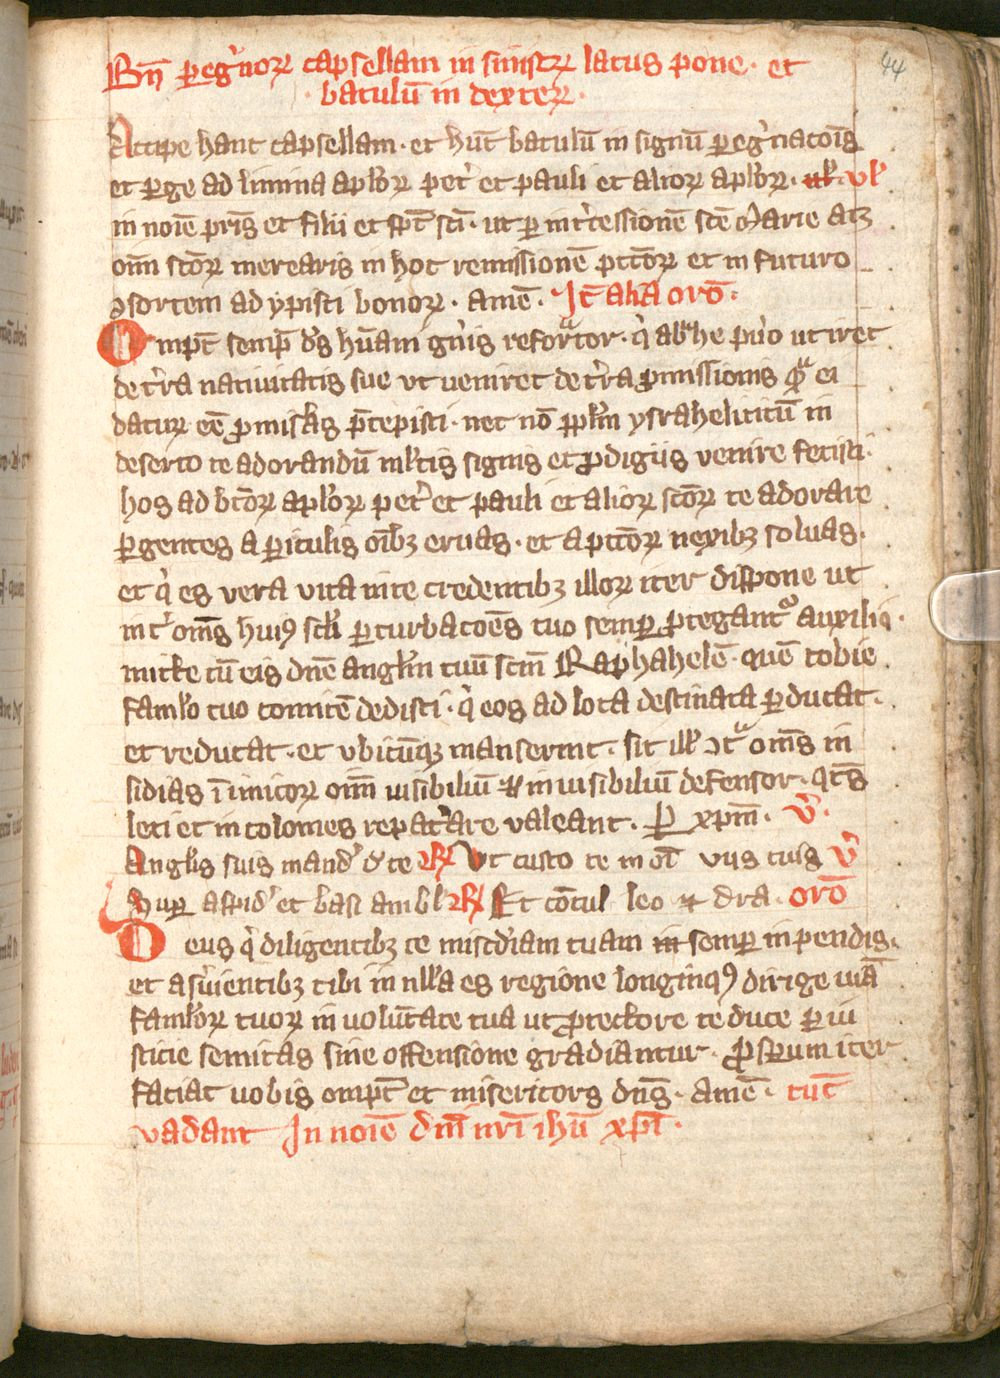 44
Bn̄ peg̾noꝝ capsellam in sinistꝝ latus pone · et
· baculū in dexteꝝ ·
Accipe hanc capsellam · et hūc baculū in signū ꝑeg̾nacōis
et ꝑge ad limina apl̓oꝝ pet̾ et pauli et alioꝝ apl̓oꝝ · ul̓ · vl̓
in noīe pr̄is et filii et sp̄c sc̄i · ut ꝑ int̾cessionē sc̄e Marie atꝫ
om̄i sc̄oꝝ merearis in hoc remissionē pccōꝝ et in futuro
ꝯsortem ad ypisci bonoꝝ · amē · It̄ alia orō ·
Ompt̄ semp̄ ds̄ hūam gn̾is reformator · q̾ abr̓he pu̾o ut iret
de t̾ra nativitatis sue vt veniret de t̾ra ꝓmissionis q̄ ei
datuꝝ eē ꝓmisr̓as p̄cepisti · nec nō ppl̓m ysraheliticū in
deserto te adorandū ml̓tis signis et ꝓdigiis venire fecisti ·
hos ad bt̄oꝝ apl̓oꝝ pet̾ et pauli et alioꝝ sc̄oꝝ te adorare
ꝑgentes a ꝑiculis oīb̓ꝫ eruas · et a pccōꝝ nexibꝫ soluas ·
et q̾ es vera vita in te credentibꝫ illoꝝ iter dispone ut
int̾ omēs huiꝰ scl̓i ꝑturbacōes tuo semꝑ ꝓtegant᷑ auxilio ·
mitte cū eis dn̄e angl̓m tuū scm̄ Raphahelē · quē tobie
faml̓o tuo comitē dedisti · q̾ eos ad loca destinata ꝑducat ·
et reducat · et vbicūqꝫ manserint · sit ill̓ ꝯt̾ omēs in
sidias īimicoꝝ oīm visibiliū ⁊ in visibiliū defensor · qt̄s
leti et in colomes repat̾are valeant · P xpm̄ · v̾ ·
Angl̓is suis mand̾ d̾ te ℞ Ut custo te in oī viis tuis v̾
Sup aspid̾ et basi ambl ℞ Et cōcul leo ⁊ dra · orō
Deus q̾ diligentibꝫ te miscd̾iam tuam in semꝑ inpendis ·
et a s̾uientibꝫ tibi in nll̓a es regione longinqꝰ dirige uiā
faml̓oꝝ tuoꝝ in volūtate tua ut ꝓtectore te duce ꝑ iu
sticie semitas sine offensione gradiantur · ꝓsꝑum iter
faciat vobis ompt̄ et misericors dn̄s · amē · tūc
vadant In noīe dn̄i nr̄i ihū xpī ·